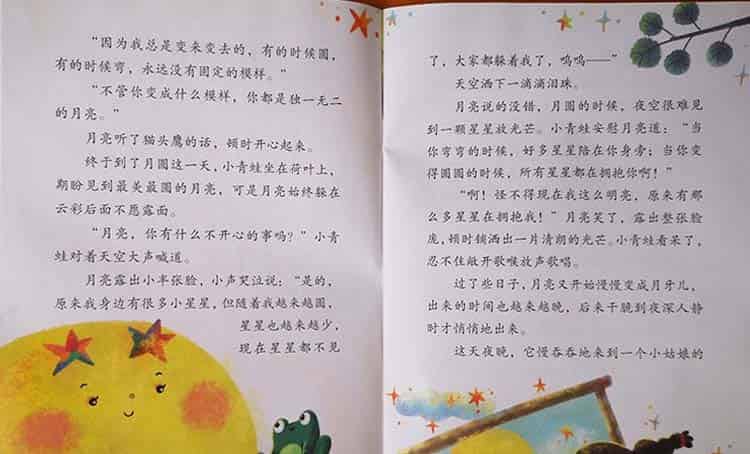 “因为我总是变来变去的，有的时候圆，
有的时候弯，永远没有固定的模样。”
“不管你变成什么模样，你都是独一无二
的月亮。”
月亮听了猫头鹰的话，顿时开心起来。
终于到了月圆这一天，小青蛙坐在荷叶上，
期盼见到最美最圆的月亮，可是月亮始终躲在
云彩后面不愿露面。
“月亮，你有什么不开心的事吗？”小青
蛙对着天空大声喊道。
月亮露出小半张脸，小声哭泣说：“是的，
原来我身边有很多小星星，但随着我越来越圆，
星星也越来越少，
现在星星都不见
了，大家都躲着我了，呜呜——”
天空洒下一滴滴泪珠。
月亮说的没错，月圆的时候，夜空很难见
到一颗星星放光芒。小青蛙安慰月亮道：“当
你弯弯的时候，好多星星陪在你身旁；当你变
得圆圆的时候，所有星星都在拥抱你啊！”
“啊！怪不得现在我这么明亮，原来有那
么多星星在拥抱我！”月亮笑了，露出整张脸
庞，顿时铺洒出一片清朗的光芒。小青蛙看呆了，
忍不住敞开歌喉放声歌唱。
过了些日子，月亮又开始慢慢变成月牙儿，
出来的时间也越来越晚，后来干脆到夜深人静
时才悄悄地出来。
这天夜晚，它慢吞吞地来到一个小姑娘的